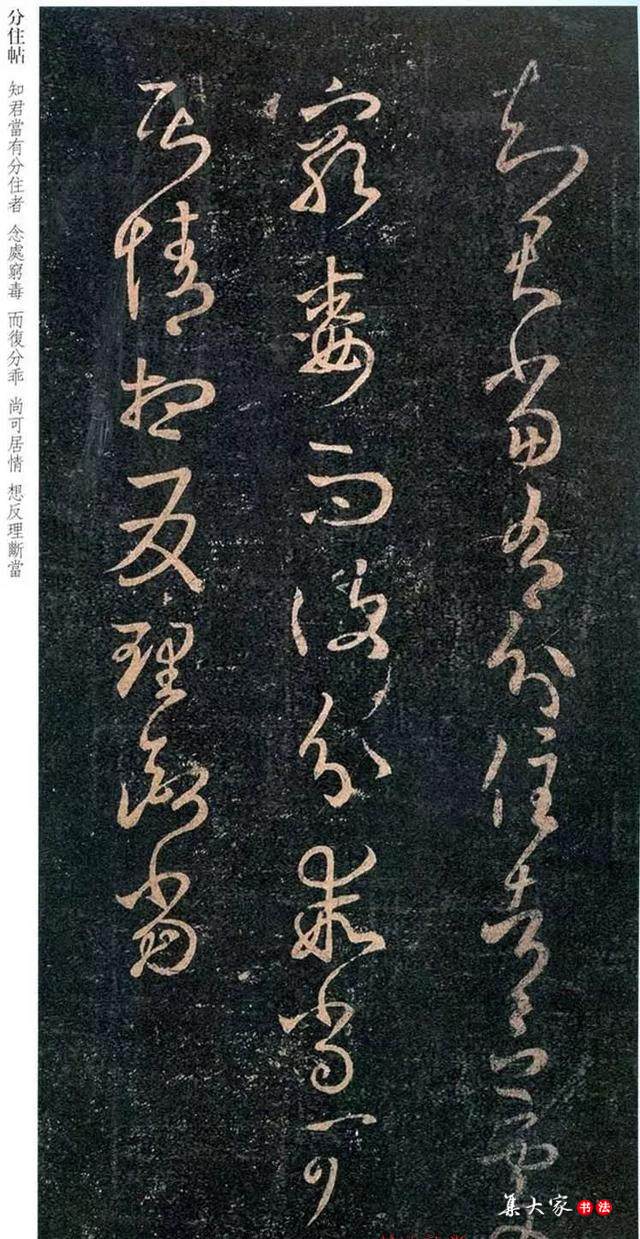 知君當有分住者念處
窮毒而復分乖尚可
居情想反理斷當
分住帖 知君當有分住者 念處窮毒 而復分乖 尚可居情 想反理斷當
集大家书法